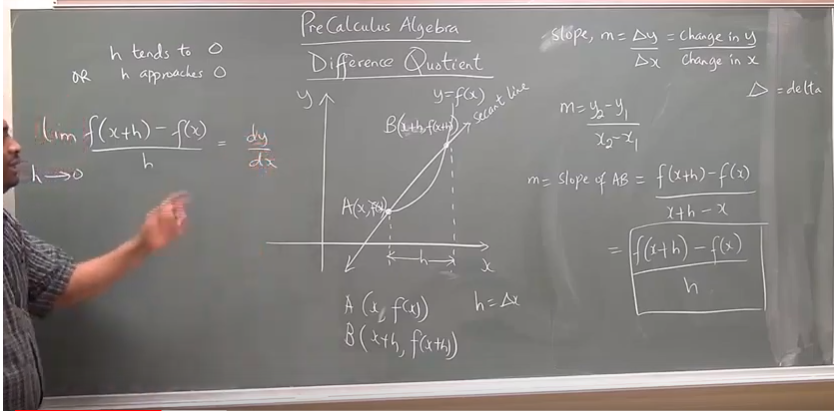 PreCalculus Algebra
Difference Quotient
h tends to 0
OR h approaches 0
lim f(x+h) - f(x) = dy
h→0 h dx
y
y=f(x)
secant line
B(x+h, f(x+h))
A(x, f(x))
h
x
A (x, f(x))
B(x+h, f(x+h))
h = Δx
slope, m = Δy = change in y
Δx change in x
Δ = delta
m = y₂-y₁
x₂-x₁
m = slope of AB = f(x+h) - f(x)
x+h - x
= f(x+h) - f(x)
h